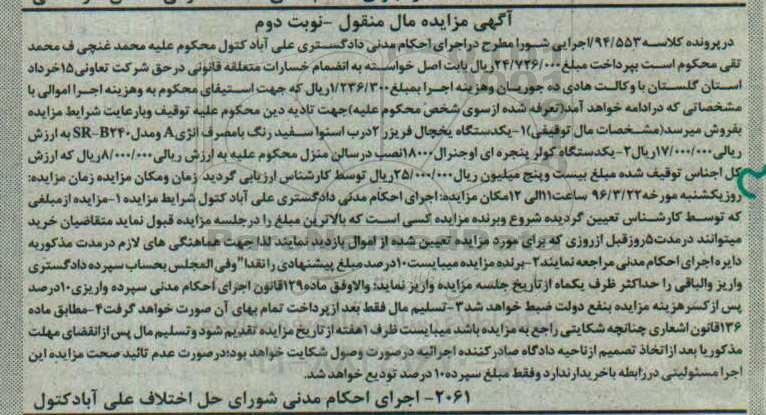 آگهی مزایده مال منقول -نوبت دوم
درپرونده کلاسه۹۴/۵۵۳/اجرایی شورا مطرح دراجرای احکام مدنی دادگستری علی آباد کتول محکوم علیه محمد غنچی ف محمد
تقی محکوم است بپرداخت مبلغ۲۴/۷۲۶/۰۰۰ریال بابت اصل خواسته به انضمام خسارات متعلقه قانونی درحق شرکت تعاونی۱۵خرداد
استان گلستان با وکالت هادی ده جوریان وهزینه اجرا بمبلغ۱/۲۳۶/۳۰۰ریال که جهت استیفای محکوم به وهزینه اجرا اموالی با
مشخصاتی که درادامه خواهد آمد(تعرفه شده ازسوی شخص محکوم علیه)جهت تادیه دین محکوم علیه توقیف وبارعایت شرایط مزایده
بفروش میرسد(مشخصات مال توقیفی)۱-یکدستگاه یخچال فریزر ۲درب اسنوا سفید رنگ بامصرف انرژیA ومدل۲۴۰SR-B به ارزش
ریالی۱۷/۰۰۰/۰۰۰ریال۲-یکدستگاه کولر پنجره ای اوجنرال۱۸۰۰۰نصب درسالن منزل محکوم علیه به ارزش ریالی۸/۰۰۰/۰۰۰ریال که ارزش
کل اجناس توقیف شده مبلغ بیست وپنج میلیون ریال۲۵/۰۰۰/۰۰۰ریال توسط کارشناس ارزیابی گردید زمان ومکان مزایده زمان مزایده:
روزیکشنبه مورخه۹۶/۳/۲۲ ساعت۱۱الی ۱۲مکان مزایده:اجرای احکام مدنی دادگستری علی آباد کتول شرایط مزایده ۱-مزایده ازمبلغی
که توسط کارشناس تعیین گردیده شروع وبرنده مزایده کسی است که بالاترین مبلغ را درجلسه مزایده قبول نماید متقاضیان خرید
میتوانند درمدت۵روزقبل ازروزی که برای مورد مزایده تعیین شده از اموال بازدید نمایند لذا جهت هماهنگی های لازم درمدت مذکوربه
دایره اجرای احکام مدنی مراجعه نمایند۲-برنده مزایده میبایست۱۰درصد مبلغ پیشنهادی را نقدا"وفی المجلس بحساب سپرده دادگستری
واریز والباقی را حداکثر ظرف یکماه ازتاریخ جلسه مزایده واریز نماید؛ والاوفق ماده۱۲۹قانون اجرای احکام مدنی سپرده واریزی۱۰درصد
پس ازکسرهزینه مزایده بنفع دولت ضبط خواهد شد۳-تسلیم مال فقط بعد ازپرداخت تمام بهای آن صورت خواهد گرفت۴-مطابق ماده
۱۳۶قانون اشعاری چنانچه شکایتی راجع به مزایده باشد میبایست ظرف ۱هفته ازتاریخ مزایده تقدیم شود وتسلیم مال پس ازانقضای مهلت
مذکوریا بعد ازاتخاذ تصمیم ازناحیه دادگاه صادرکننده اجرائیه درصورت وصول شکایت خواهد بود؛درصورت عدم تائید صحت مزایده این
اجرا مسئولیتی دررابطه باخریدارندارد وفقط مبلغ سپرده۱۰درصد تودیع خواهد شد.
۲۰۶۱- اجرای احکام مدنی شورای حل اختلاف علی آبادکتول